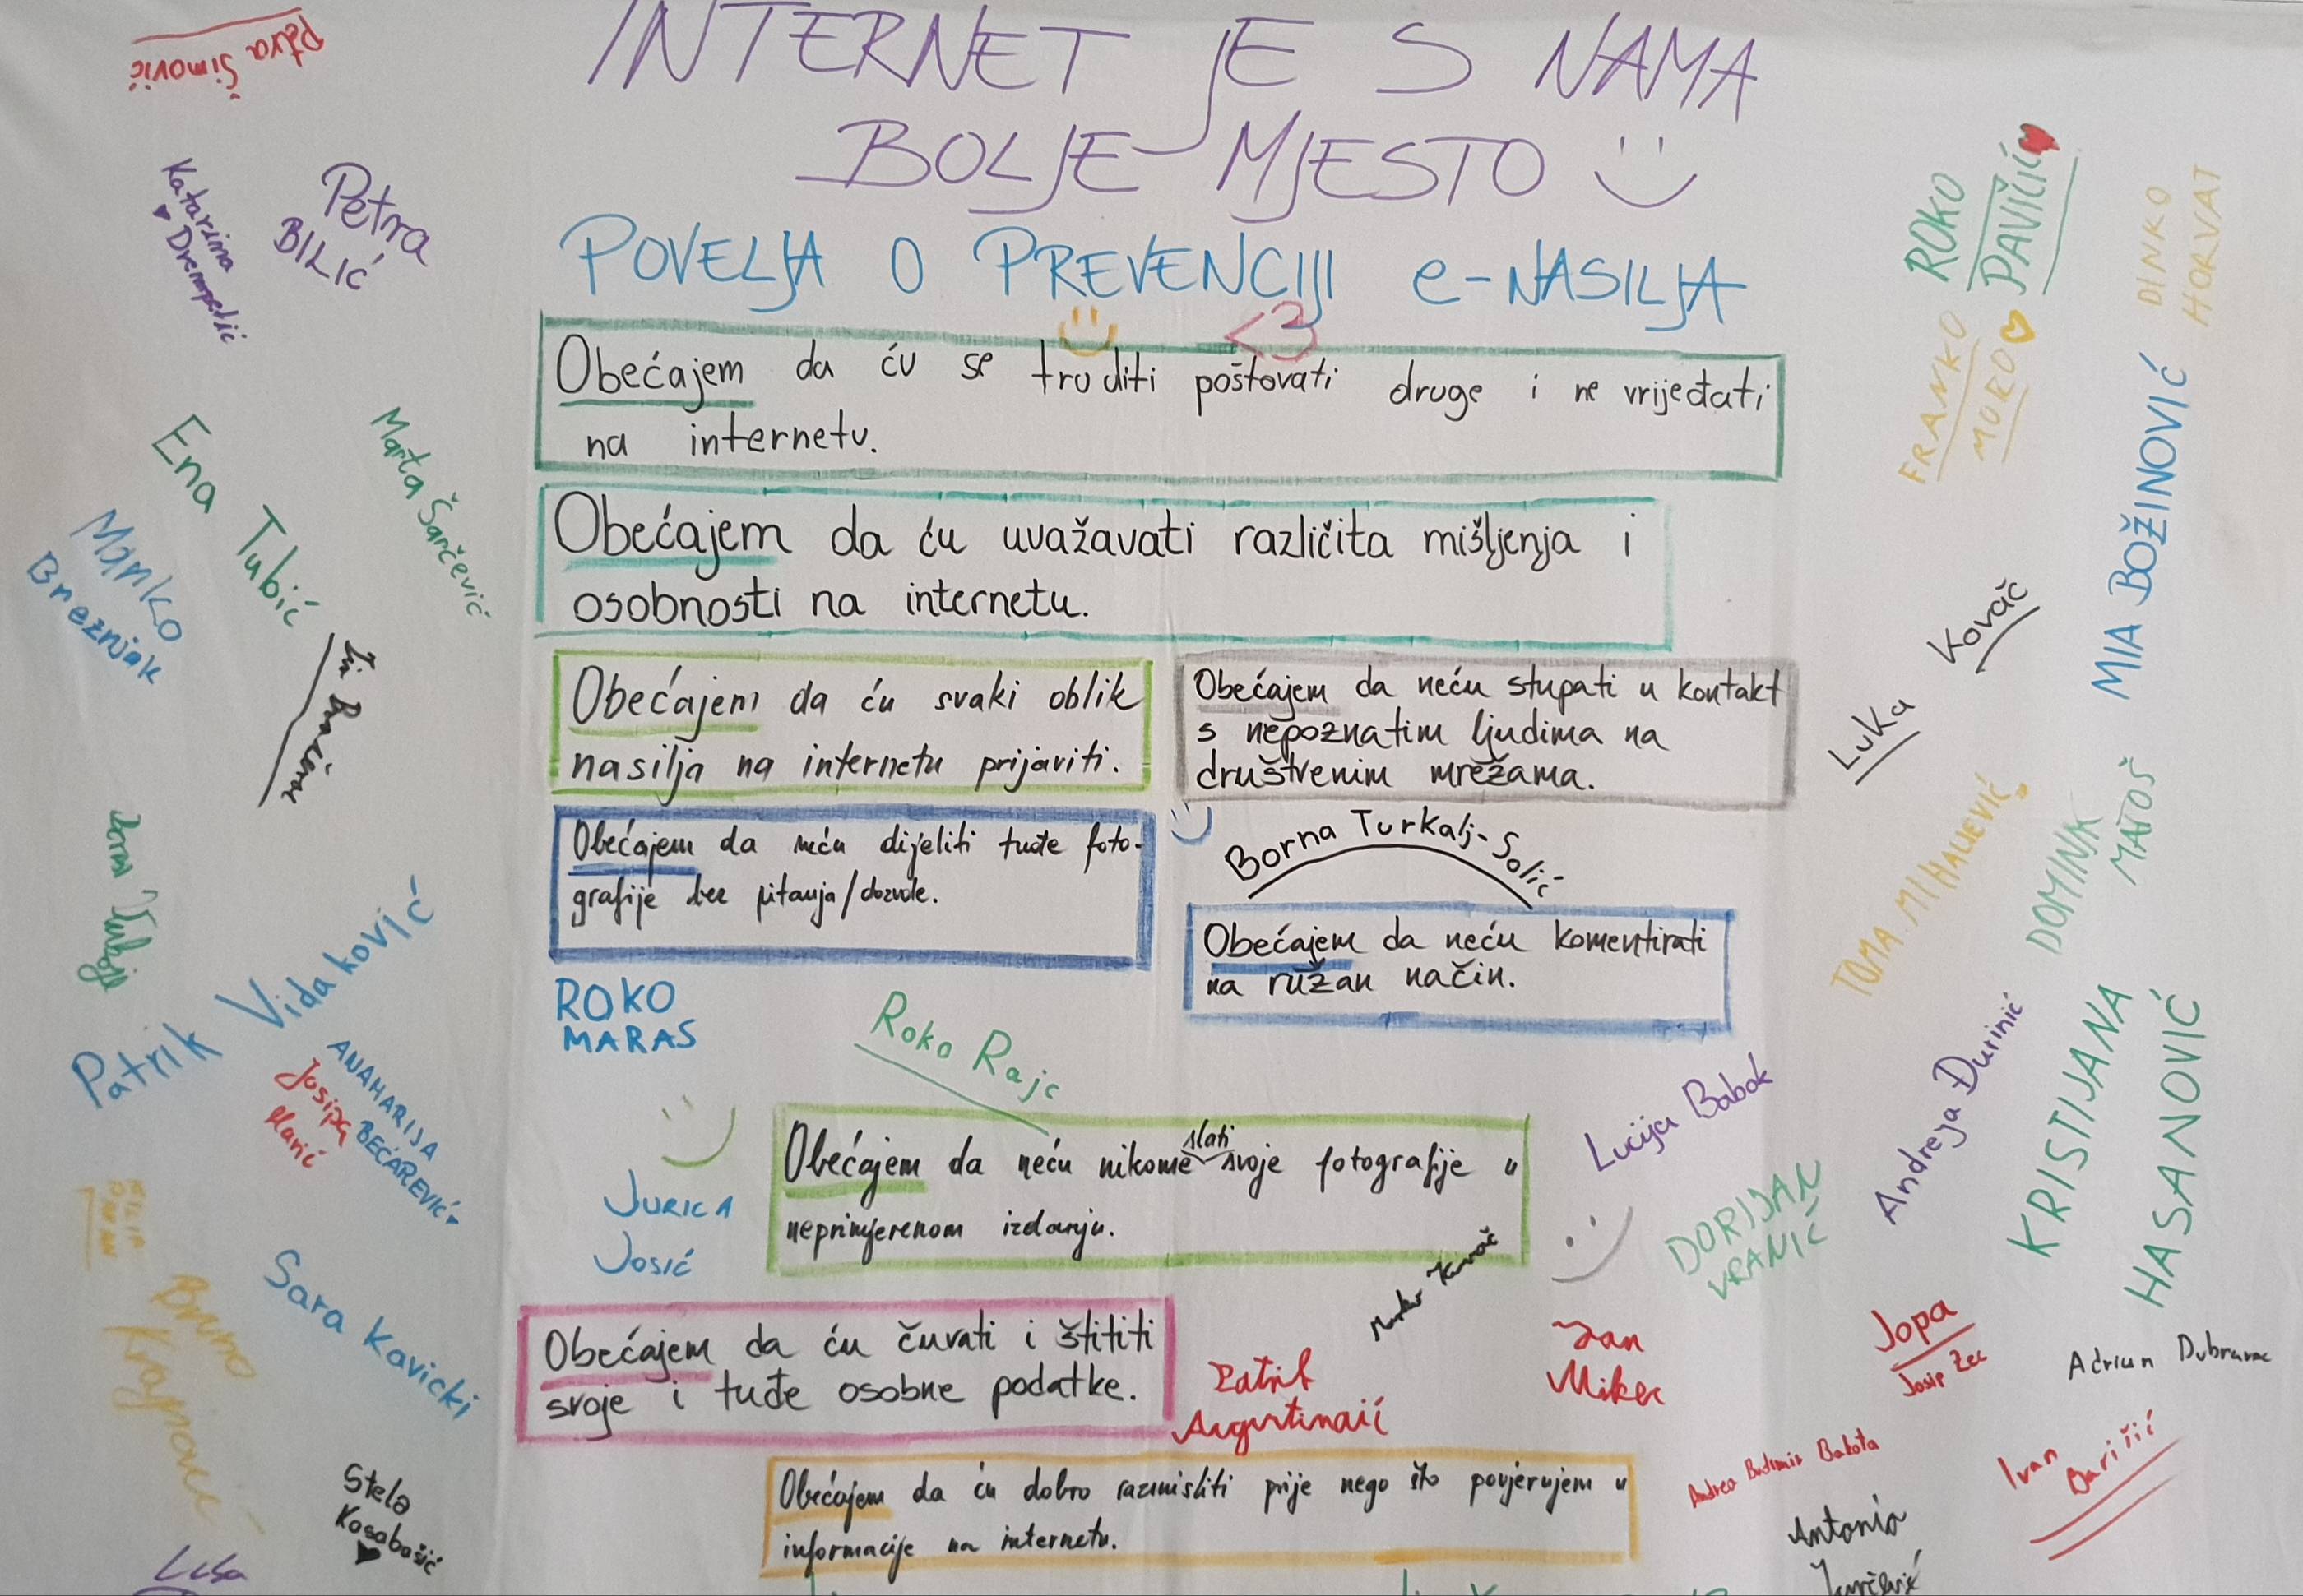 INTERNET JE S NAMA
BOLJE MJESTO
POVELJA O PREVENCIJI e-NASILJA
<3
Obećajem da ću se truditi poštovati druge i ne vrijeđati
na internetu.
Obećajem da ću uvažavati različita mišljenja i
osobnosti na internetu.
Obećajem da ću svaki oblik
nasilja na internetu prijaviti.
Obećajem da neću stupati u kontakt
s nepoznatim ljudima na
društvenim mrežama.
Obećajem da neću dijeliti tuđe foto-
grafije bez pitanja/dozvole.
Borna Turkalj-Solić
Obećajem da neću komentirati
na ružan način.
ROKO
MARAS
Roko Rajc
Obećajem da neću nikome slati svoje fotografije u
neprimjerenom izdanju.
JURICA
JOSIĆ
Obećajem da ću čuvati i štititi
svoje i tuđe osobne podatke.
Obećajem da ću dobro razmisliti prije nego što povjerujem u
informacije na internetu.
Petra Šimović
Katarina
Petra
BILIĆ
Ena Tubić
Marta Šarčević
Marko
Breznjak
Patrik Vidaković
ANAMARIJA
BEĆAREVIĆ
Josipa
Marić
Bruno
Sara Kavicki
Stela
Kosabašić
ROKO
PAVIČIĆ
DINKO
HORVAT
FRANKO
MURO
MIA BOŽINOVIĆ
Luka Kovač
TOMA MIHALJEVIĆ
DOMINIK
MATOŠ
Lucija Babok
Andreja Đurinić
KRISTIJANA
HASANOVIĆ
DORIJAN
VRANIĆ
Jan
Mikec
Jopa
Josip Zec
Adrian
Patrik
Ivan
Antonio